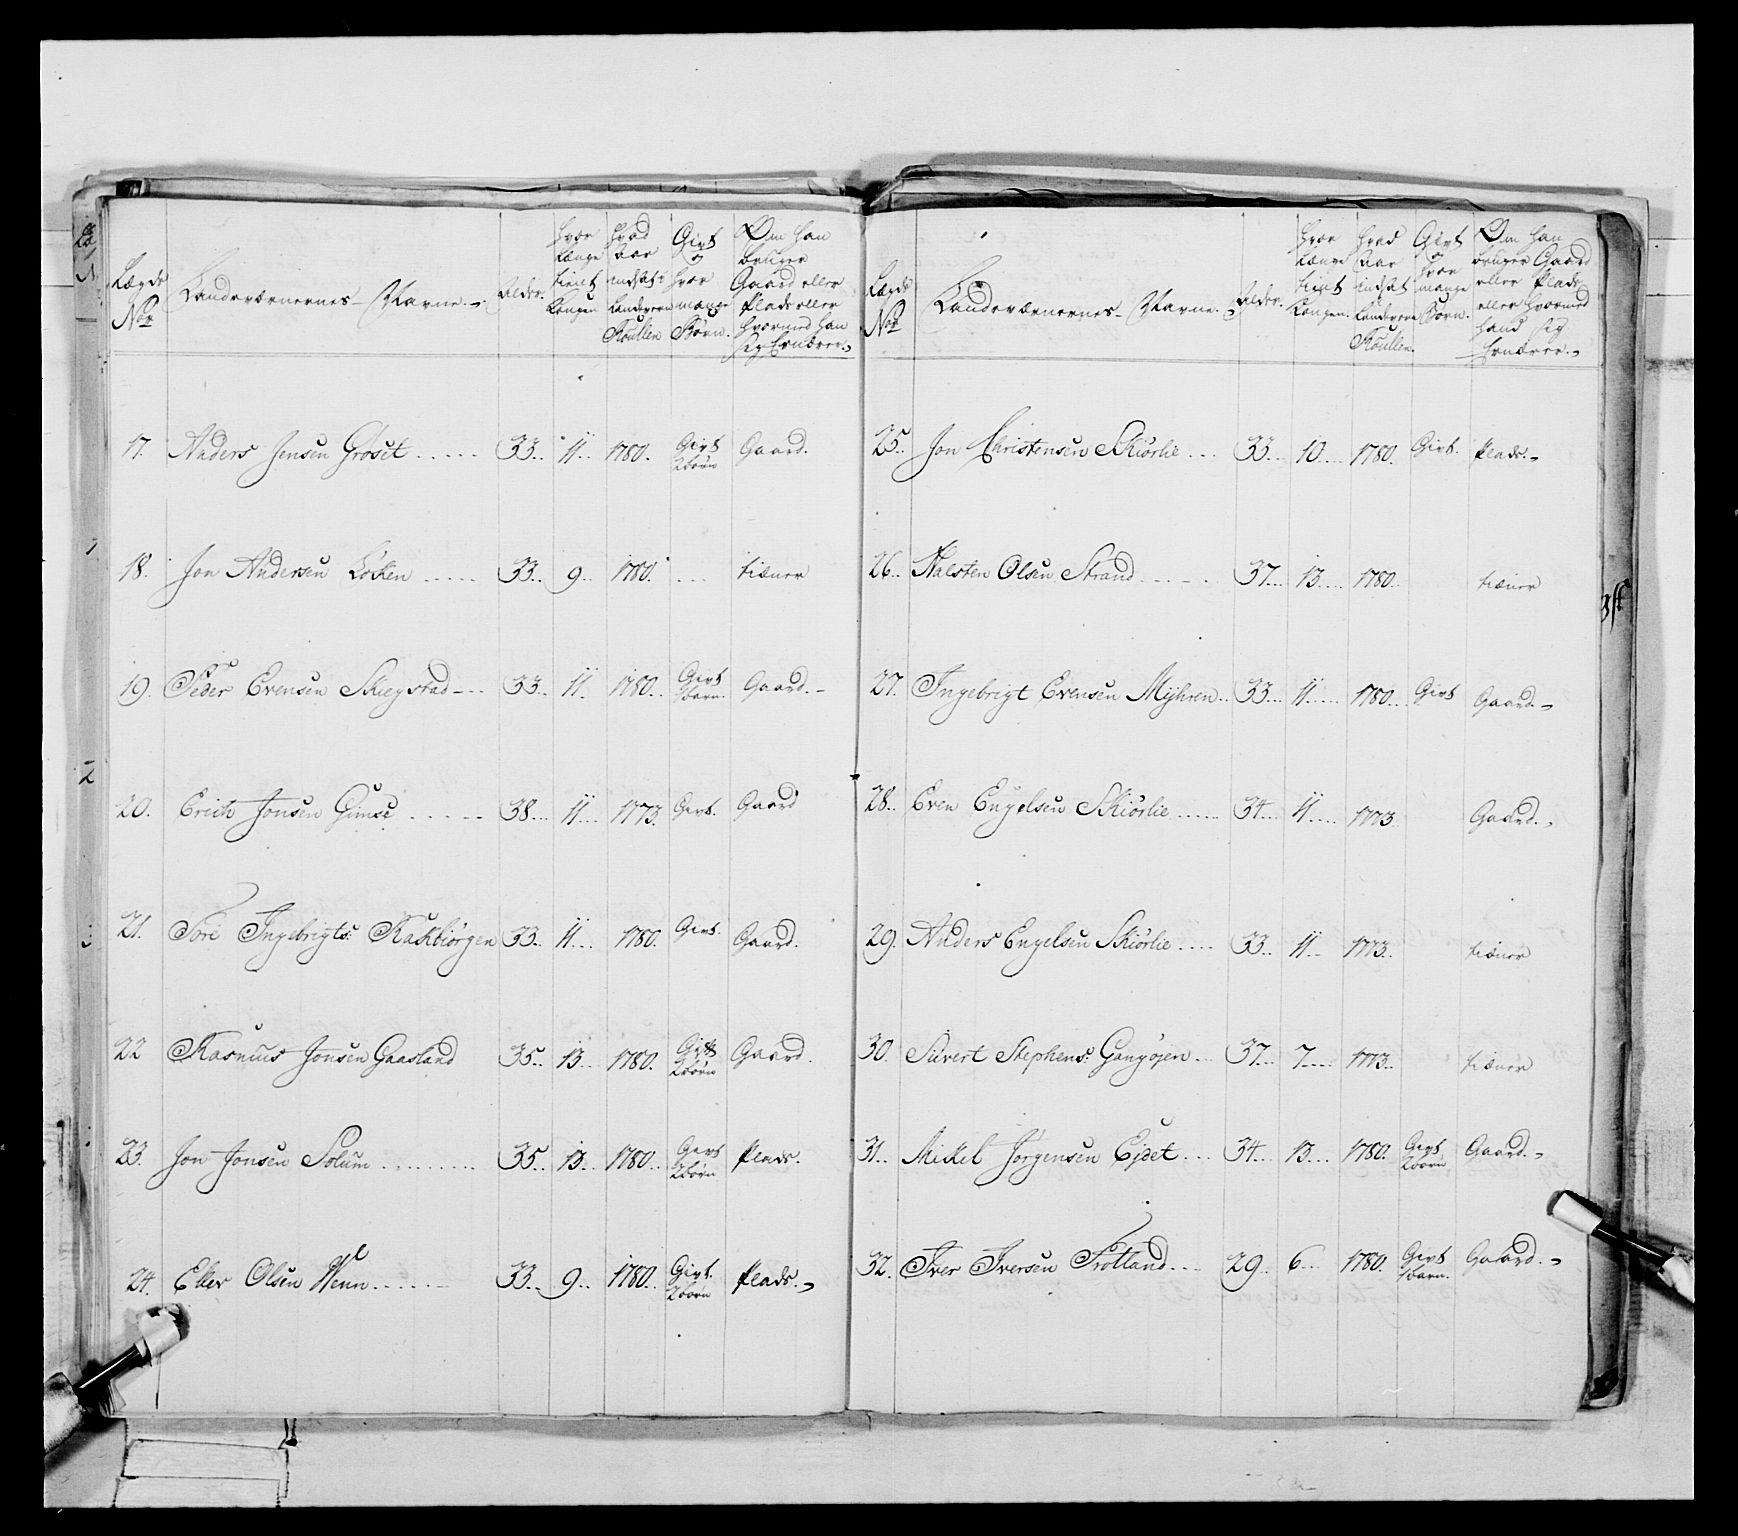 Lægds No | Landeværnernes Navne. | Alder. | hvor Længe tient Kongen | hvad Aar indsat i Landværn Roullen | Givt og hvor mange Børn. | Om han bruger Gaard eller Plads eller hvormed han sig Ernærer.
17. Anders Jensen Grøset 33 11 1780. Givt 2 børn Gaard.
18. Jon Andersen Løken 33 9 1780. tiæner
19. Peder Evensen Skiegstad 33 11 1780. Givt 1 barn Gaard.
20. Erich Jonsen Gimse 38 11 1773 Givt. Gaard
21. Tore Ingebrigts: Kakbiørgen 33 11 1780. Givt. Gaard.
22 Rasmus Jonsen Gaasland 35 13 1780. Givt 2 børn Gaard.
23. Jon Jonsen Solum 35 13 1780. Givt 2 børn Plads.
24. Eller Olsen Wenn 33 9 1780. Givt. 2 børn Plads.
Lægds No | Landeværnernes Navne. | Alder. | hvor Længe tient Kongen. | hvad Aar indsat Landværn Roullen. | Givt og hvor mange Børn. | Om han bruger Gaard eller Plads eller hvormed hand sig Ernærer.
25. Jon Christensen Skiørlie 33 10 1780. Givt. Plads.
26. Halsten Olsen Strand 37 13 1780. tiæner
27. Ingebrigt Evensen Mÿhren 33 11 1780. Givt Gaard.
28. Even Engelsen Skiørlie 34 11 1773 Gaard.
29. Anders Engelsen Skiørlie 33 11 1773. tiæner
30. Siivert Stephens: Gangøjen 37 7 1773. tiæner
31. Mikel Jørgensen Ejdet 34 13 1780. Givt 2 børn Gaard.
32. Iver Iversen Trotland 29 6 1780. Givt 1 barn. Gaard.